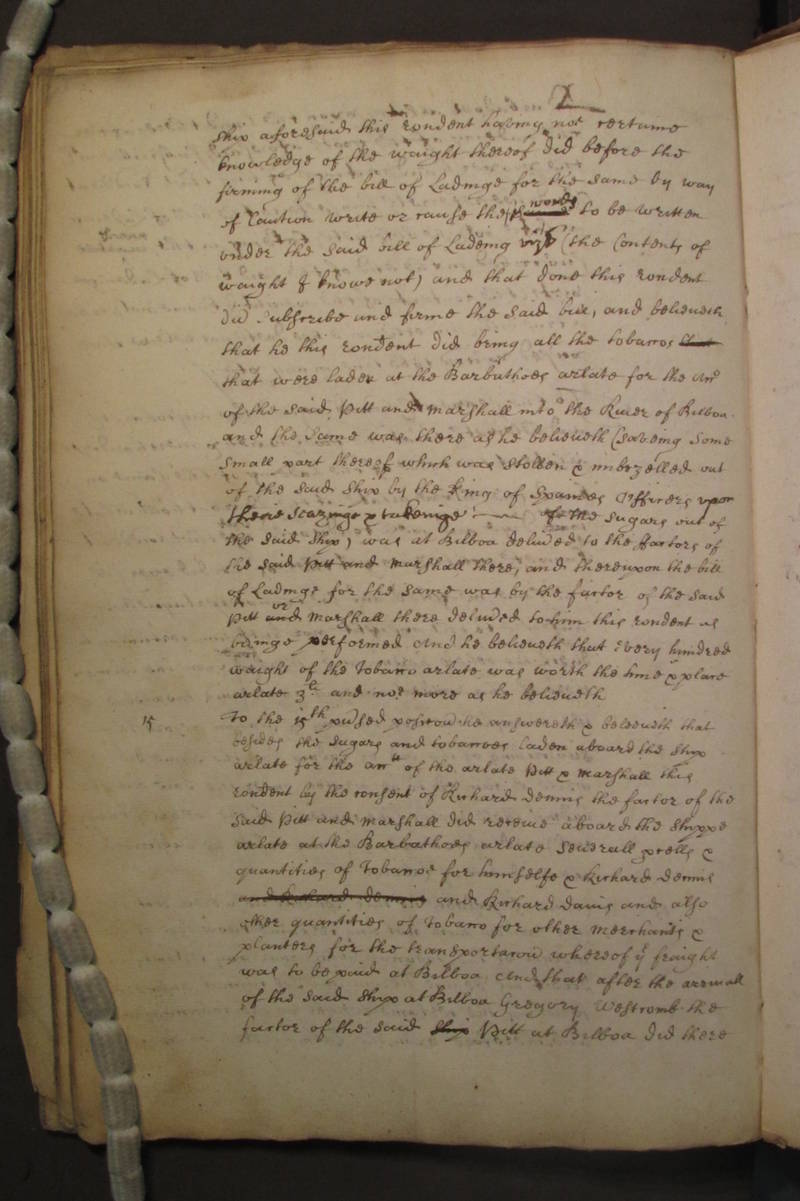 2
shix aforesaid this rondent having not certaine
knowledge of the waight thereof did before the
firming of the bill of Ladinge for the same by way
of Caution write or cause the words to be written
under the said bill of Ladeing vizt (the Contents of
waight I knowe not) and that done this rondent
did subscribe and firme the said bill, and believeth
that he this rondent did bring all the tobaccos that
that were laden at the Barbathoes arlate for the acc
of the said Pitt and Marshall into the River of Bilboa
and the same was there as he believeth (saveing some
small part thereof which was stollen & imbezelled out
of the said ship by the King of Spaines Officers upon
there seazinge & takeinge of the sugars out of
the said ship) was at Bilboa delived to the factors of
the said Pitt and Marshall there, and thereupon the bill
of Ladinge for the same was by the factor of the said
Pitt or and Marshall there delived to him this rondent as
beinge performed And he believeth that every hundred
waight of the Tobacco arlate was worth the time & place
arlate 3li and not more as he believeth
15 To the 15th pused position he answereth & beleeveth that
besides the sugars and tobaccoes laden aboard the ship
arlate for the acctt of the arlate Pitt & Marshall this
rondent by the consent of Richard Dennis the factor of the
said Pitt and Marshall did receive aboard the shippe
arlate at the Barbathoes arlate severall pcells &
quantities of Tobaccoe for himselfe & Richard Dennis
and Richard Dennis and Richard Davis and also
other quantities of Tobacco for other Merchants &
planters for the transportacon whereof ye fraight
was to be paid at Bilboa And that after the arrivall
of the said ship at Bilboa Gregory Westcomb the
factor of the said ship Pitt at Bilboa did there